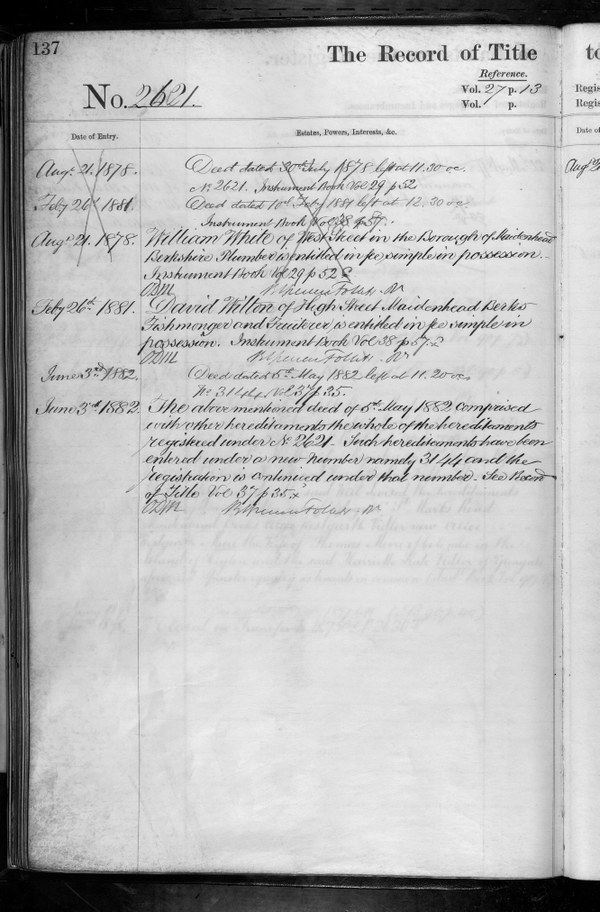 137
The Record of Title
to
Reference.
No. 2621.
Vol. 27 p. 13
Vol. p.
Regis
Regis
Date of Entry.
Estates, Powers, Interests, &c.
Date of
Augt. 21. 1878. Deed dated 30th July 1878 left at 11.30 oc.
No. 2621. Instrument Book Vol 29 p 52
Feby 26th 1881. Deed dated 10th Feby 1881 left at 12.30 oc.
Instrument Book Vol 38 p 57.
Augt. 21. 1878. William White of West Street in the Borough of Maidenhead
Berkshire Plumber is entitled in fee simple in possession.
Instrument Book Vol 29 p 52
Feby 26th 1881. David Wilton of High Street Maidenhead Berks
Fishmonger and Fruiterer is entitled in fee simple in
possession. Instrument Book Vol 38 p 57.
June 3rd 1882. Deed dated 5th May 1882 left at 11.20 oc.
No. 3144. Vol 37 p 35.
June 3rd 1882. The above mentioned deed of 5th May 1882 comprised
with other hereditaments the whole of the hereditaments
registered under No 2621. Such hereditaments have been
entered under a new number namely 3144 and the
registration is continued under that number. See Record
of Title Vol 37 p 35.